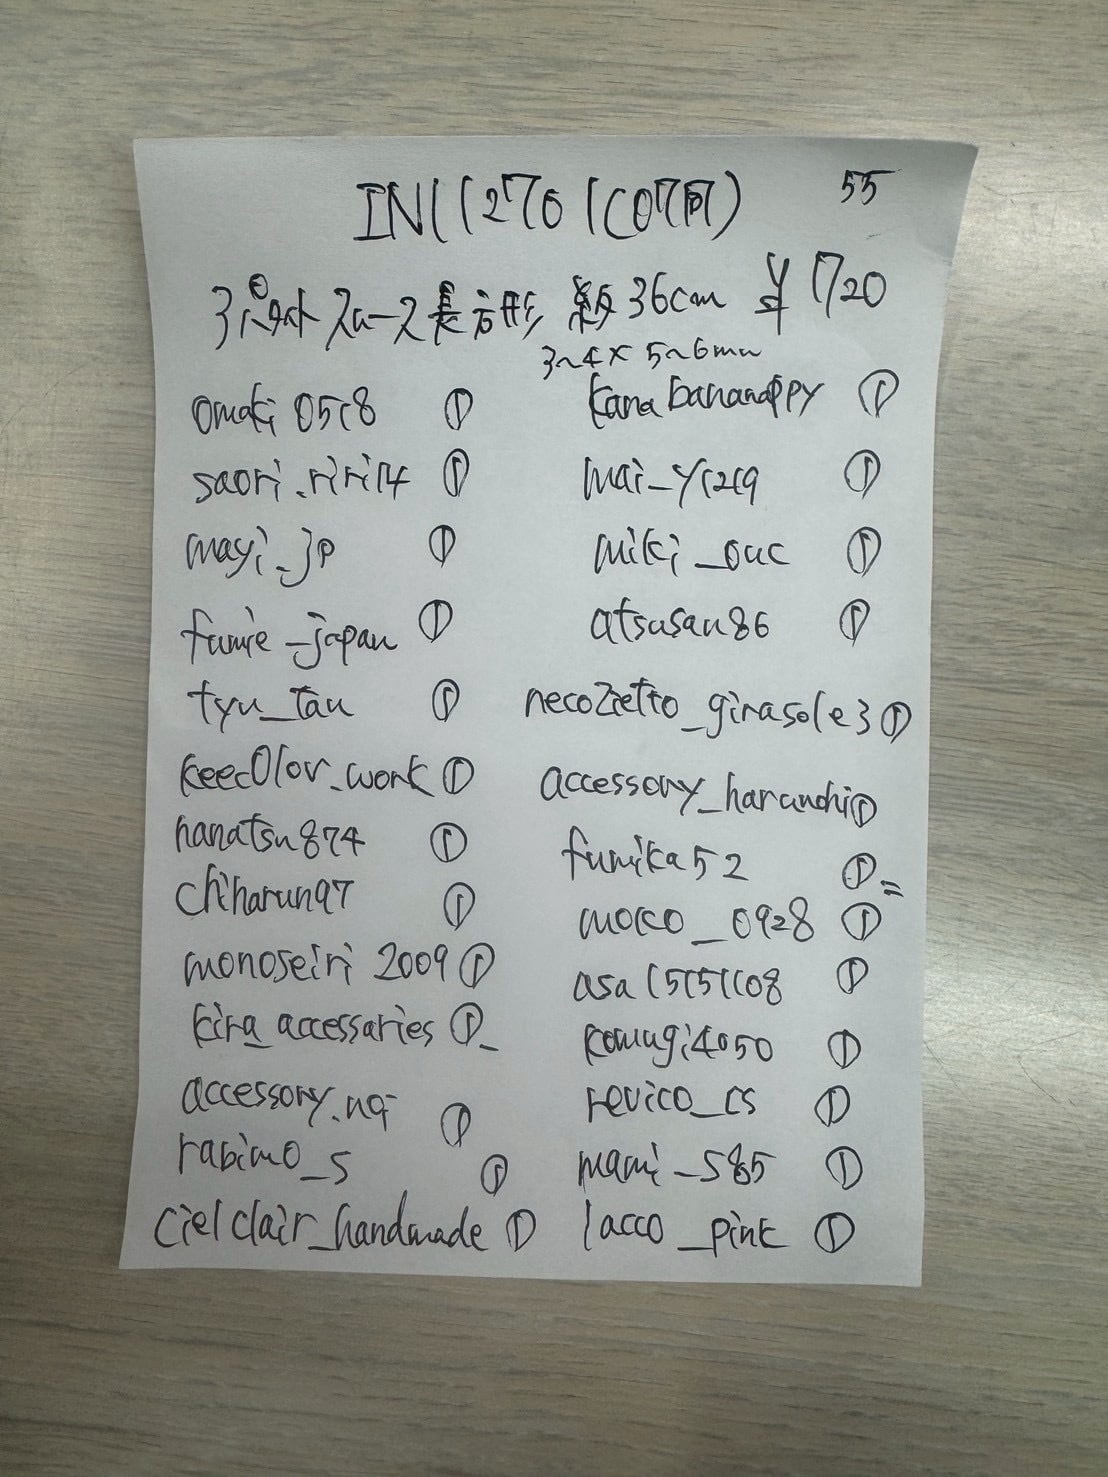 55
3~4×5~6mm
36cm ¥1720
omaki0518 ①
saori.riri14 ①
mayi_jp ①
fumie_japan ①
tyu_tau ①
keecolor_work ①
hanatsu874 ①
chiharun97 ①
monoseiri2009 ①
kira_accessaries ①
accessory.nqi ①
rabimo_s ①
cielclair_handmade ①
kanabananappy ①
mai_y1219 ①
miki_ouc ①
atsusan86 ①
necozietto_girasole3 ①
accessory_harunohi ①
fumika52 ①
mocco_0928 ①
asa15151108 ①
komugi4050 ①
revico_cs ①
mami_s85 ①
lacco_pink ①